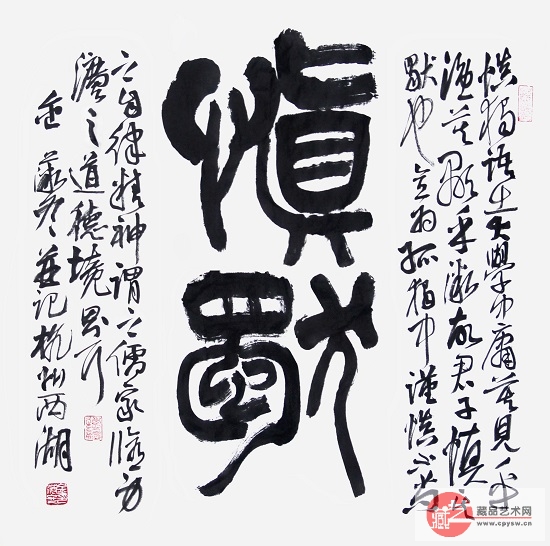 慎獨語出大學中庸莫見乎
隱莫顯乎微故君子慎其
獨也 為孤獨中謹慎不苟
慎獨
之自律精神謂之儒家修身
之道德境界
歲冬 記杭州西湖
藏品艺术网
www.cpysw.cn